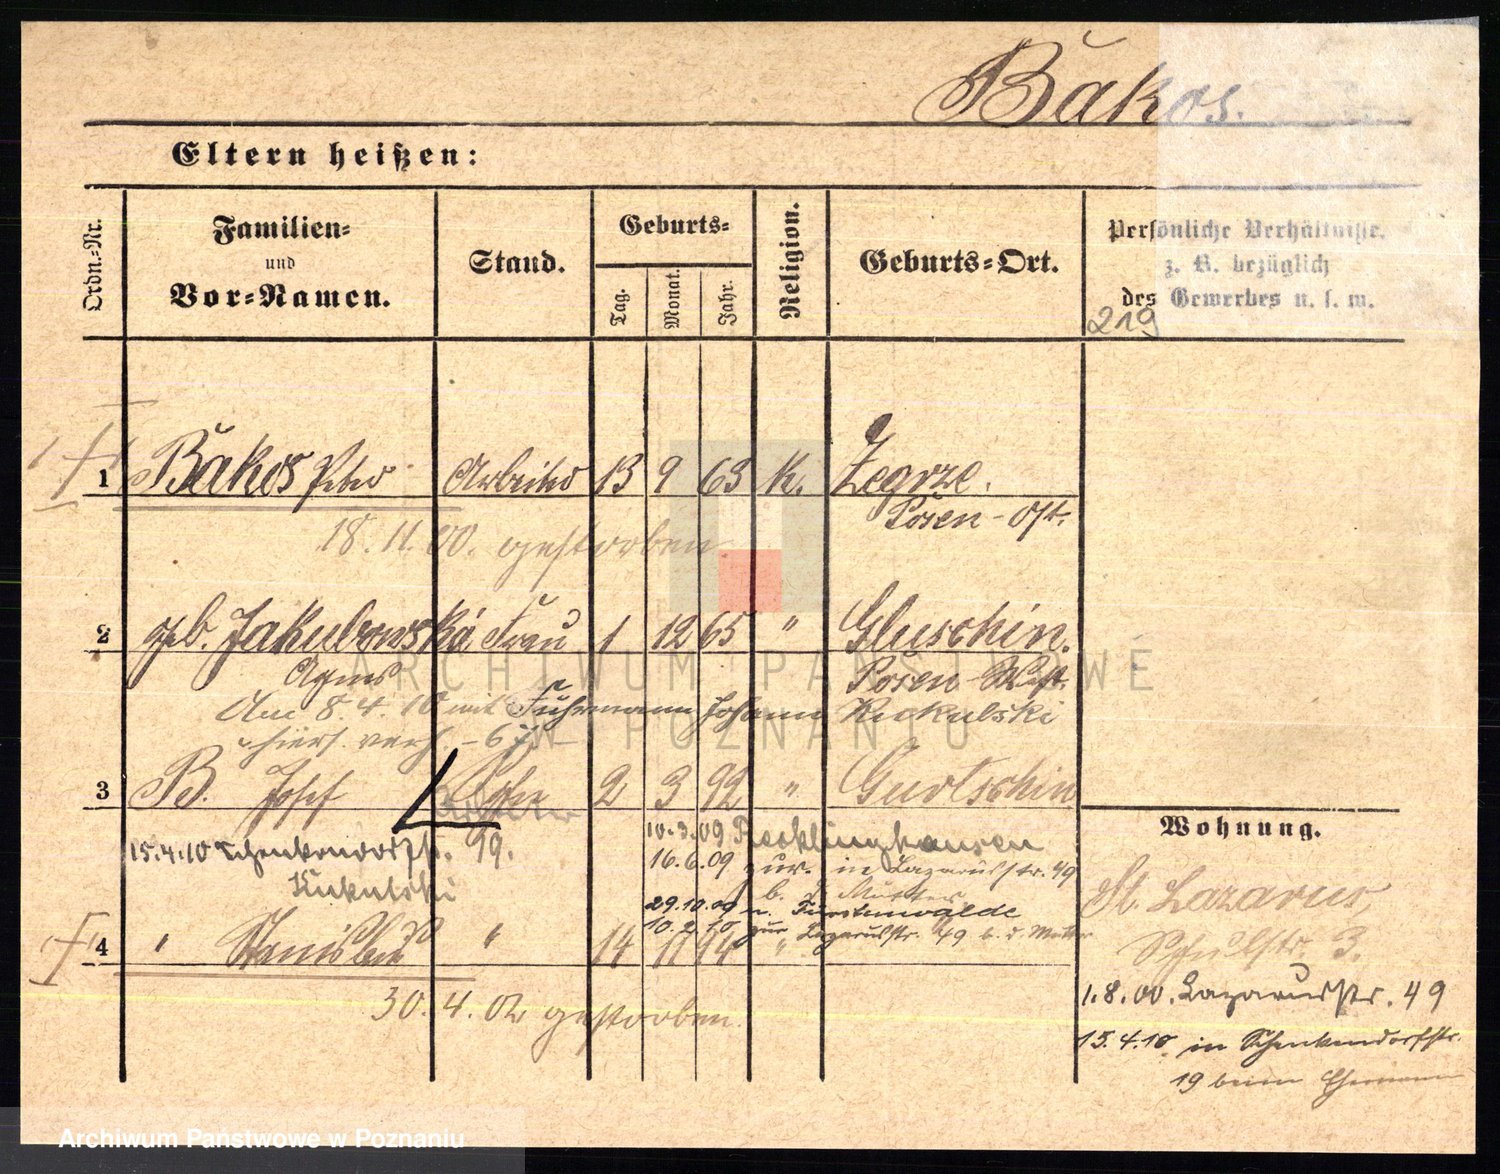 Bąkos.
Eltern heißen:
Ordn.-Nr.
Familien-
und
Vor-Namen.
Stand.
Geburts-
Tag.
Monat.
Jahr.
Religion.
Geburts-Ort.
Persönliche Verhältnisse,
z. B. bezüglich
des Gewerbes u. s. w.
219
1 Bakos Peter Arbeiter 13 9 63 K. Zegrze.
Posen-Ost.
18.11.00. gestorben
2 geb. Jakubowska Frau 1 12 65 " Gluschin.
Agnes Posen-West.
Am 8.4.10 mit Fuhrmann Johann Kukulski
hiers. verh.
3 B. Josef 2 3 92 " Gurtschin
Wohnung.
10.3.09 Recklinghausen
15.4.10 Schenkendorfstr. 19.
16.6.09 zur. in Lazarusstr. 49
Kukulski
b. d. Mutter
29.10.09 n. Fürstenwalde
10.2.10 zur Lazarusstr. 49 b. d. Mutter
4 " Stanislaus " 14 11 94 "
30.4.02 gestorben.
St. Lazarus
Schulstr. 3.
1.8.00. Lazarusstr. 49
15.4.10 in Schenkendorfstr.
19 beim Ehemann
ARCHIWUM PAŃSTWOWE
W POZNANIU
Archiwum Państwowe w Poznaniu